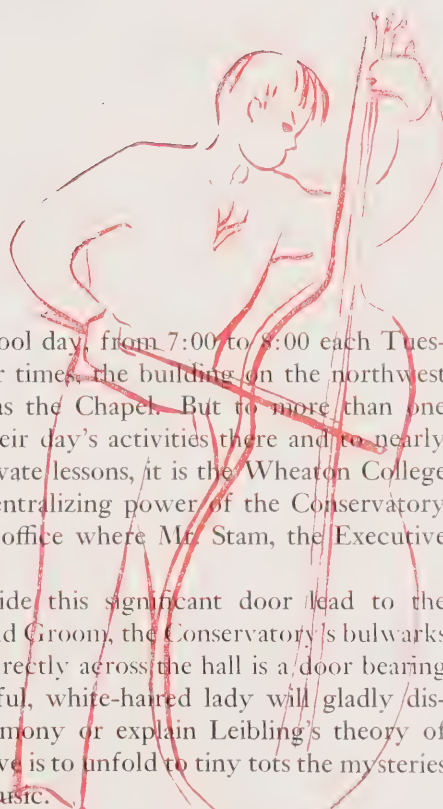 ool day, from 7:00 to 8:00 each Tues-
r times, the building on the northwest
as the Chapel. But to more than one
eir day's activities there and to nearly
vate lessons, it is the Wheaton College
entralizing power of the Conservatory
office where Mr. Stam, the Executive
ide this significant door lead to the
d Groom, the Conservatory's bulwarks
rectly across the hall is a door bearing
ful, white-haired lady will gladly dis-
mony or explain Leibling's theory of
ve is to unfold to tiny tots the mysteries
usic.